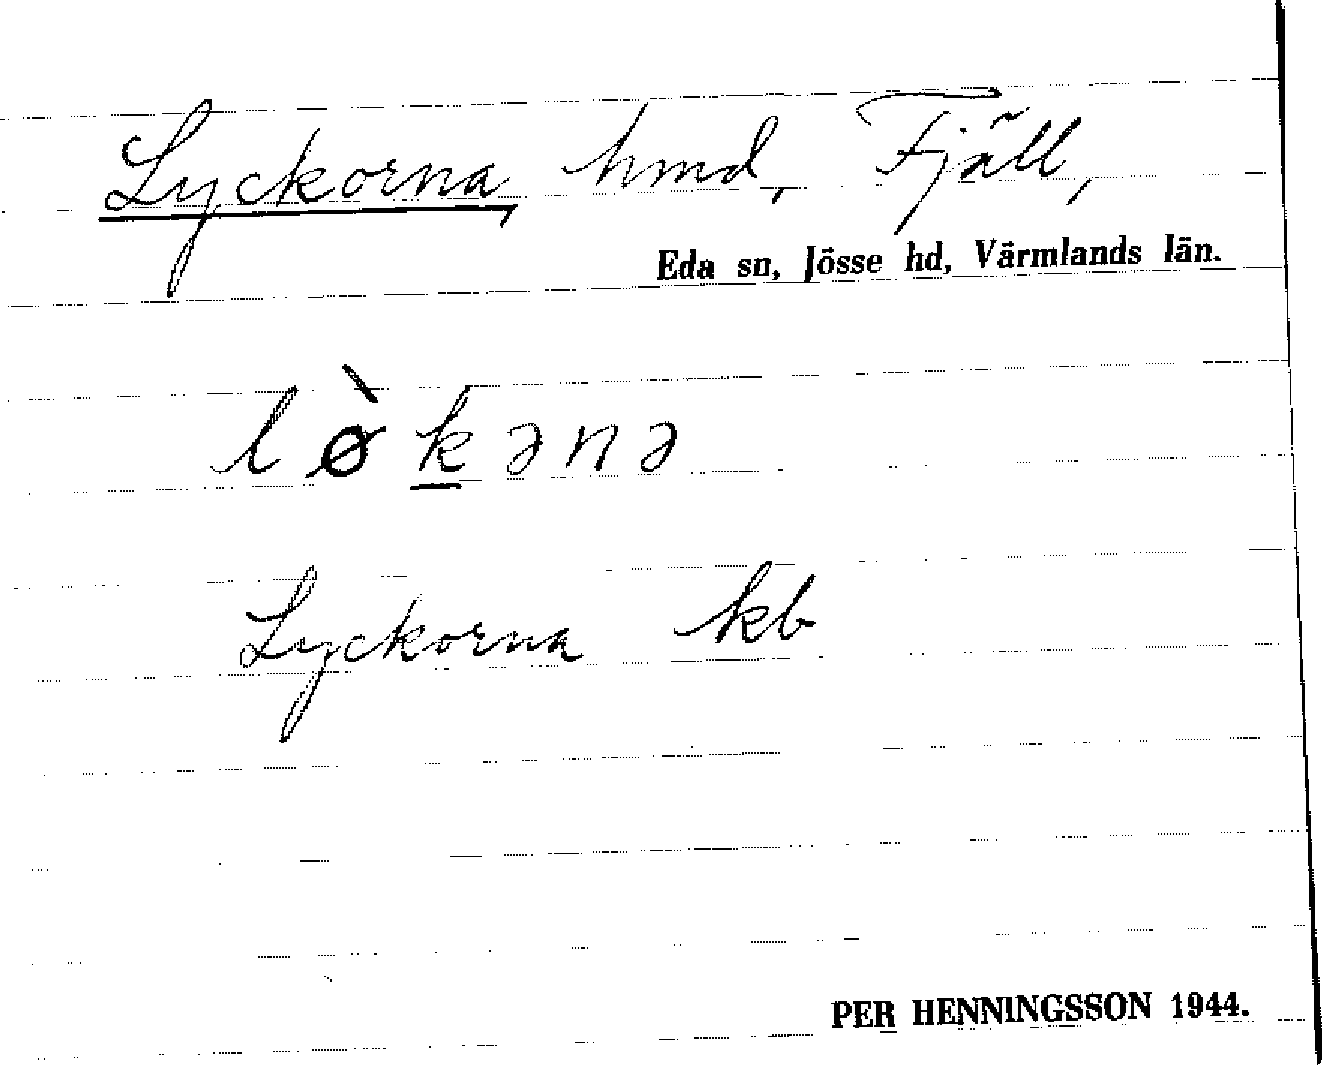 Lyckorna, hmd, Fjäll,
Eda sn, Jösse hd, Värmlands län.
lø̀k̲ənə
Lyckorna kb
PER HENNINGSSON 1944.